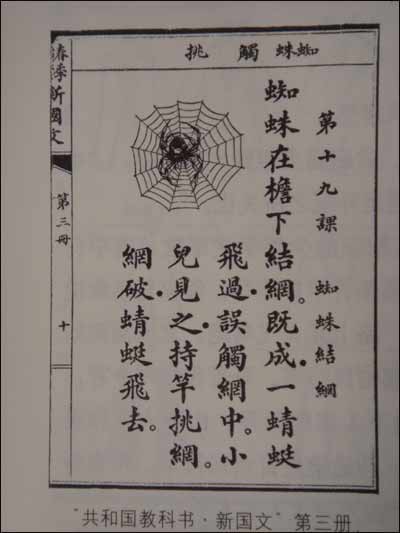 蜘蛛 觸 挑
第十九課 蜘蛛結網
蜘蛛在檐下結網•既成•一蜻蜓
飛過•誤觸網中。小
兒見之•持竿挑網。
網破•蜻蜓飛去。
春季新國文
第三冊
十
“共和国教科书·新国文”第三册